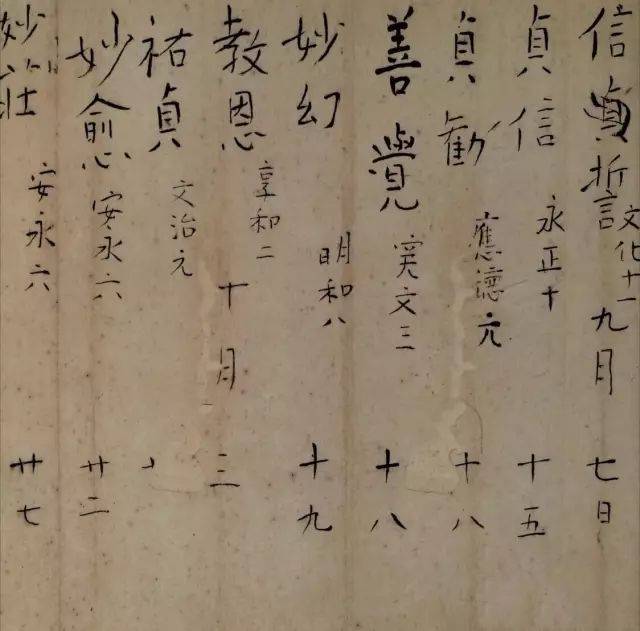 信貞哲 文化十一 九月 七日
貞信 永正十 十五
貞勸 應德元 十八
善覺 寛文三 十八
妙幻 明和八 十九
教恩 享和二 十月 三
祐貞 文治元
妙愈 安永六 廿二
妙莊 安永六 廿七